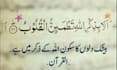 اَلَا بِذِکْرِ اللّٰهِ تَطْمَئِنُّ الْقُلُوْبُ
بیشک دلوں کا سکون اللہ کے ذکر میں ہے۔
القرآن۔